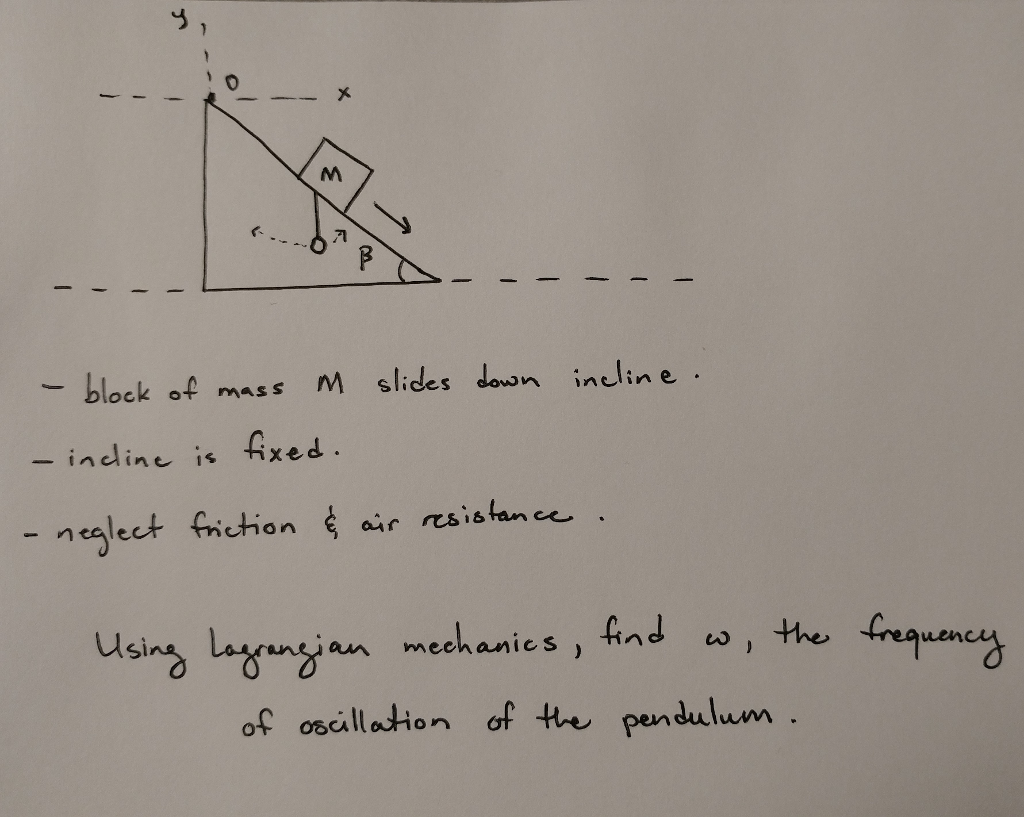 y
O
x
M
β
- block of mass M slides down incline.
- incline is fixed.
- neglect friction & air resistance.
Using Lagrangian mechanics, find ω, the frequency
of oscillation of the pendulum.